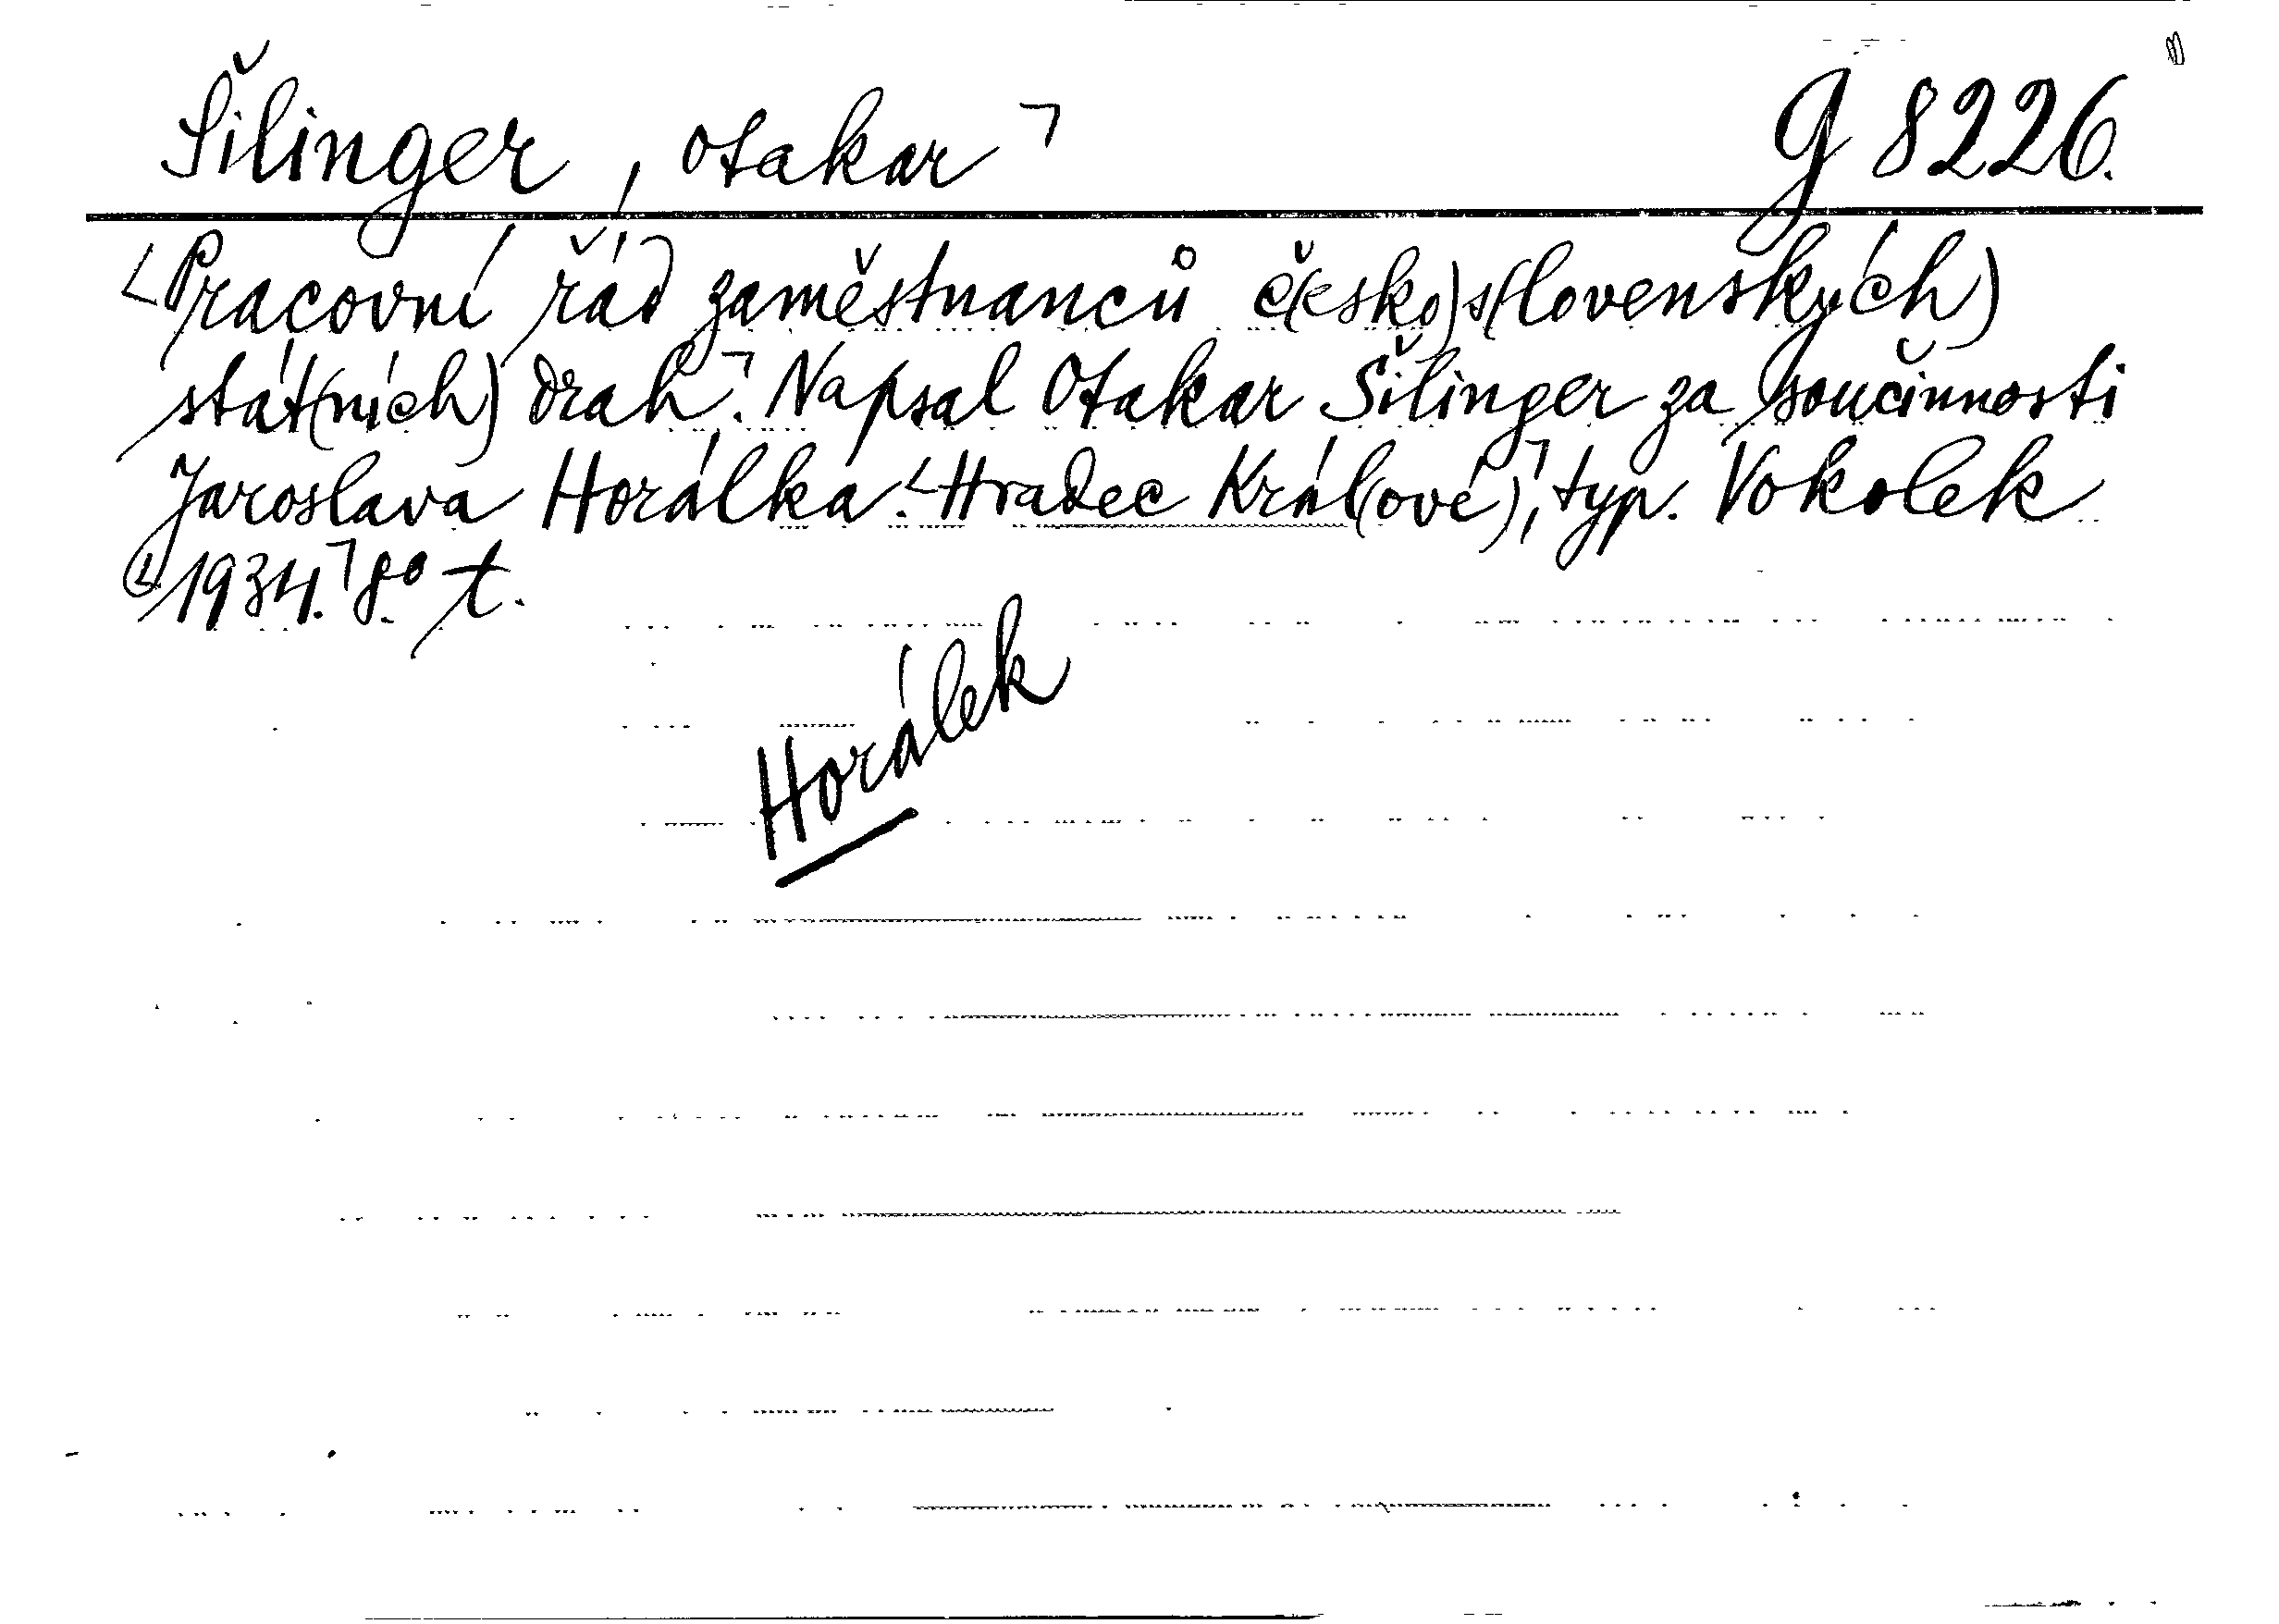 Šilinger, Otakar ㄱ g 8226.
<Pracovní řád zaměstnanců č(esko)s(lovenských)
stát(ních) drahㄱ. Napsal Otakar Šilinger za součinnosti
Jaroslava Horálka. <Hradec Král(ové)ㄱ, typ. Vokolek
1934.ㄱ 8° t.
Horálek